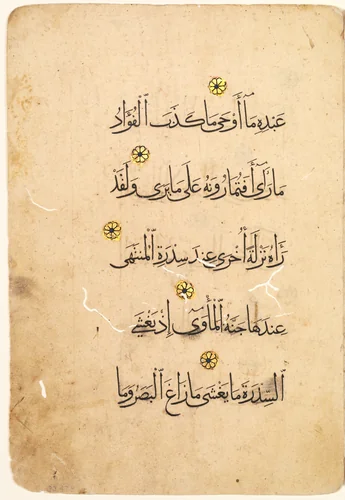 عَبْدِهِ مَا أَوْحَى مَا كَذَبَ الْفُؤَادُ
مَا رَأَى أَفَتُمَارُونَهُ عَلَى مَا يَرَى وَلَقَدْ
رَآهُ نَزْلَةً أُخْرَى عِنْدَ سِدْرَةِ الْمُنْتَهَى
عِنْدَهَا جَنَّةُ الْمَأْوَى إِذْ يَغْشَى
السِّدْرَةَ مَا يَغْشَى مَا زَاغَ الْبَصَرُ وَمَا